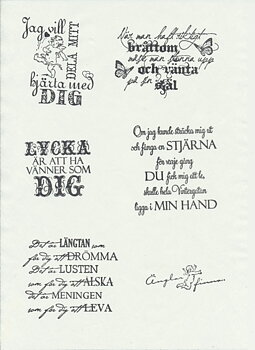 Jag vill
DELA MITT
hjärta med
DIG
När man haft riktigt
bråttom
måste man stanna upp
och vänta
på sin
själ
LYCKA
ÄR ATT HA
VÄNNER SOM
DIG
Om jag kunde sträcka mig ut
och fånga en STJÄRNA
för varje gång
DU fick mig att le,
skulle hela Vintergatan
ligga i MIN HAND
Det är LÄNGTAN som
får dig att DRÖMMA
Det är LUSTEN
som får dig att ÄLSKA
Det är MENINGEN
som får dig att LEVA
Änglar
finns